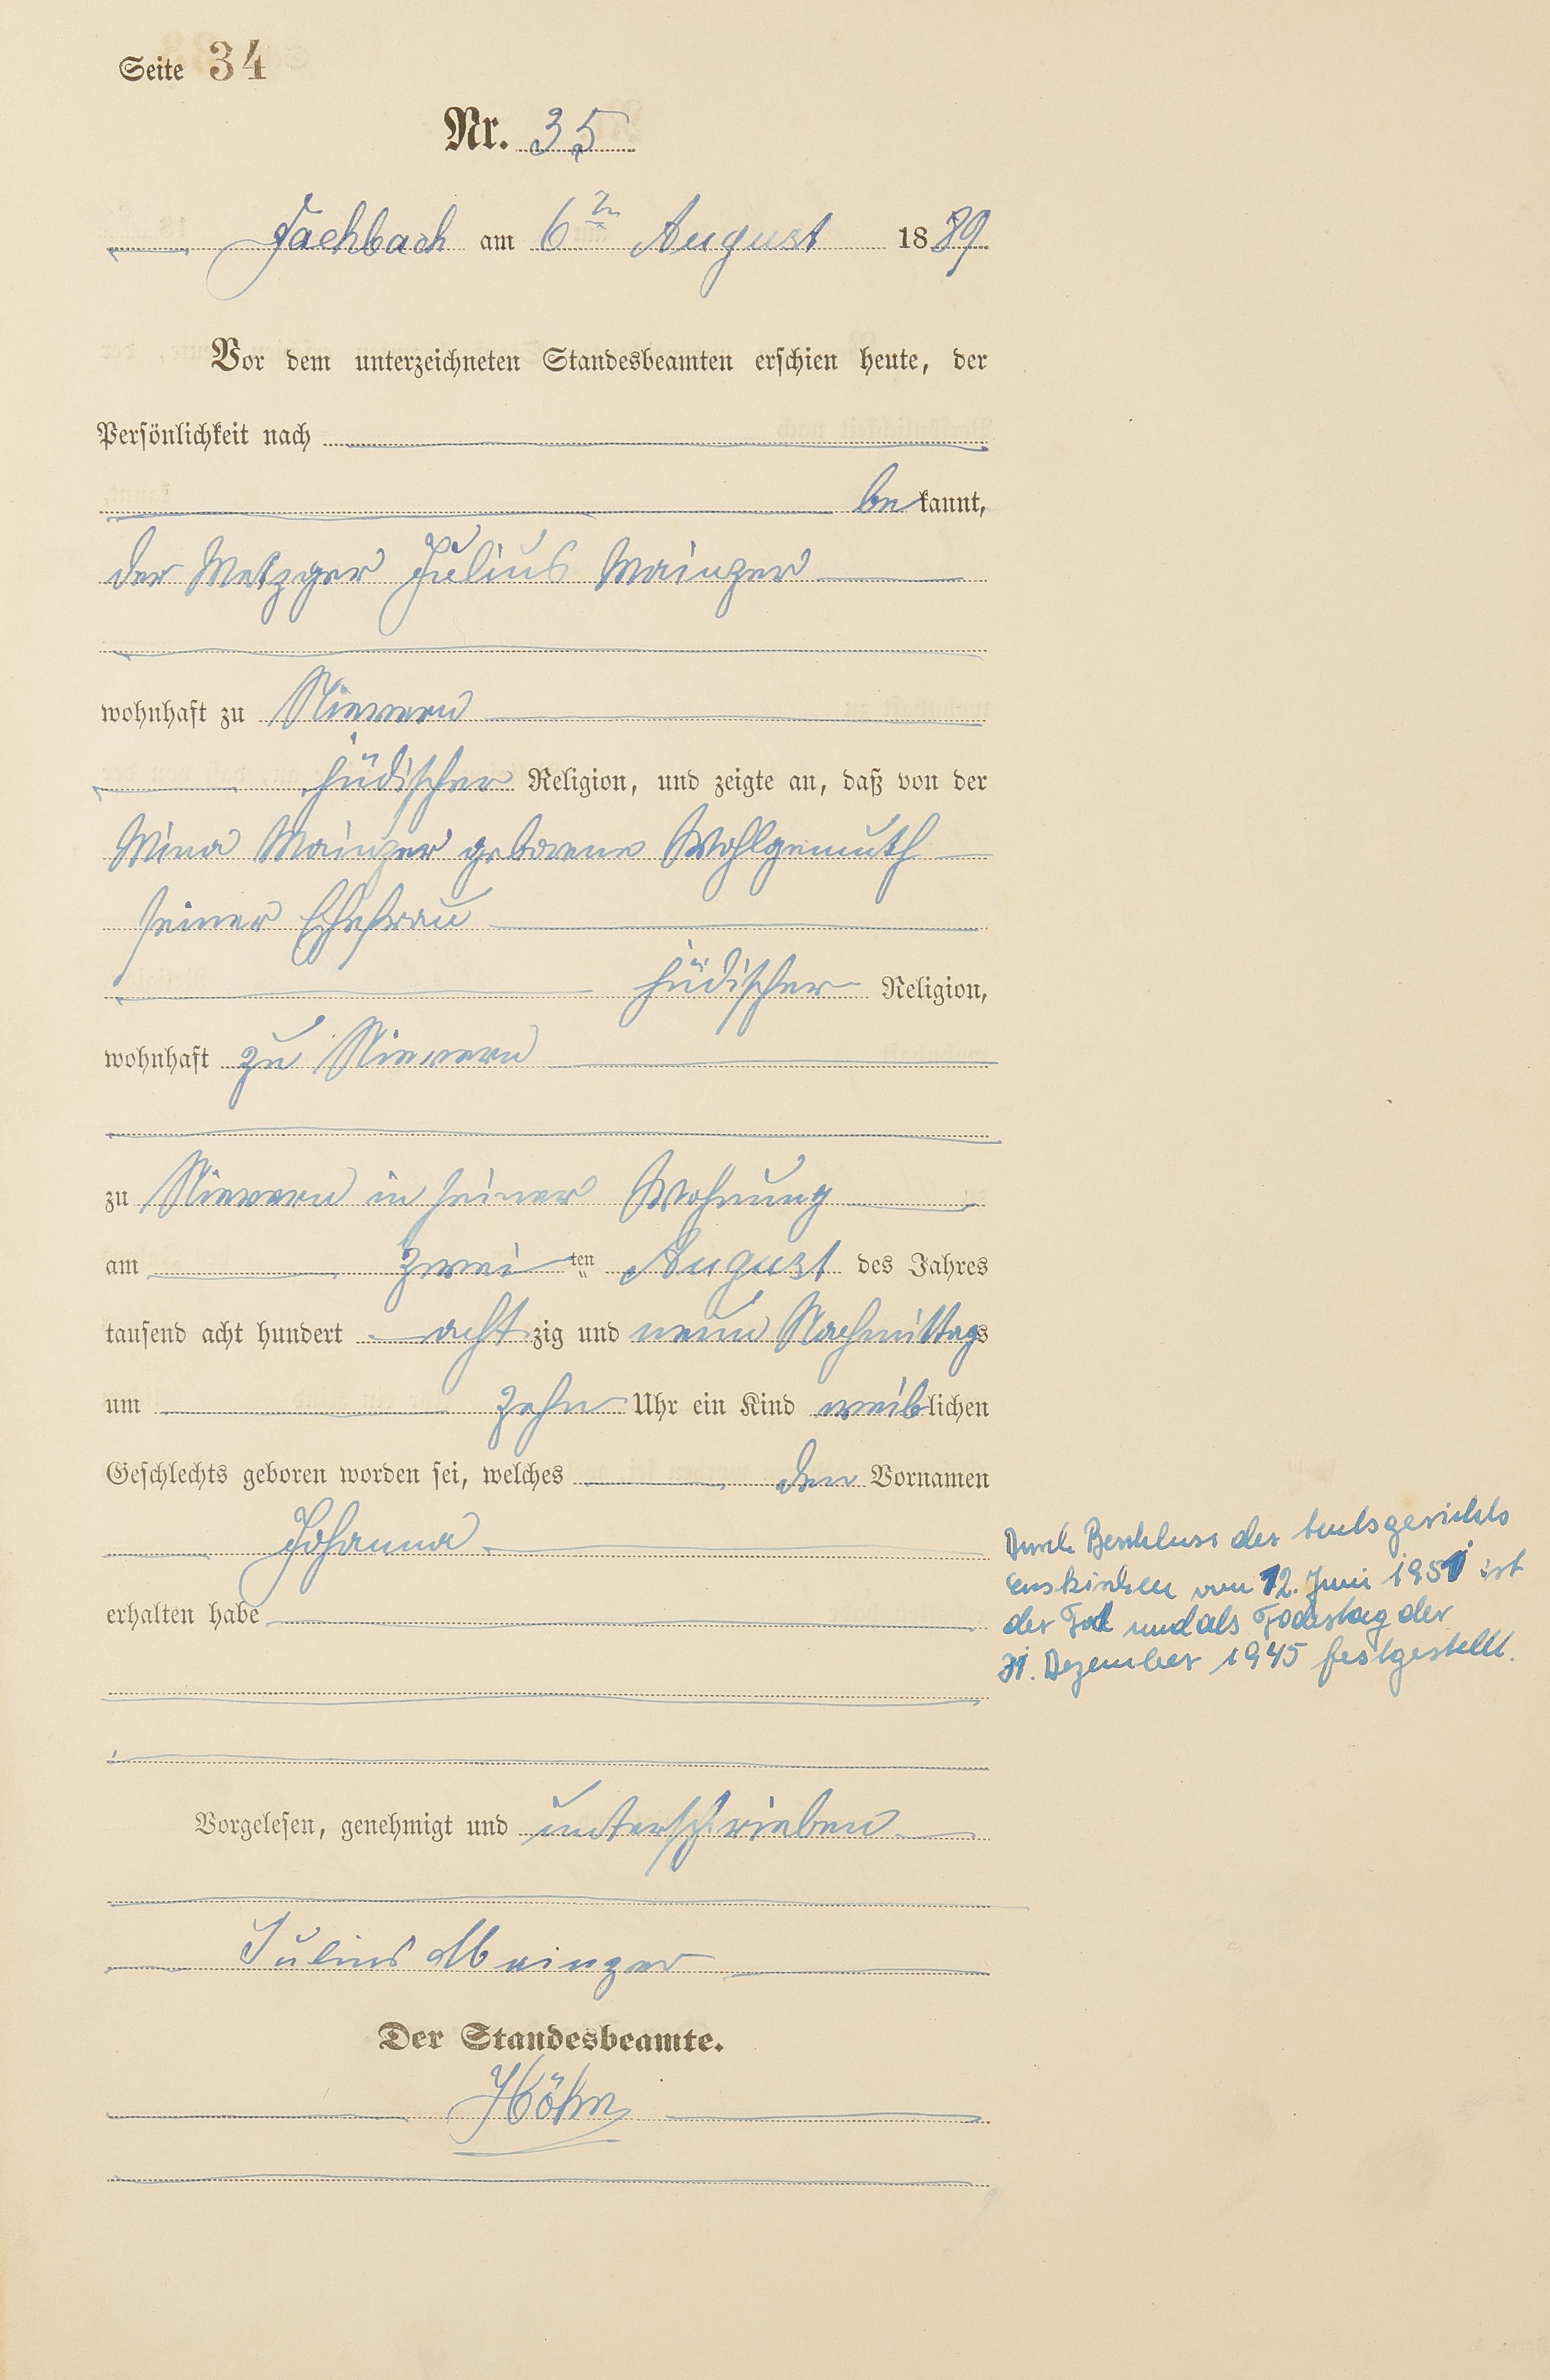 Seite 34
Nr. 35
Fachbach am 6ten August 1889
Vor dem unterzeichneten Standesbeamten erschien heute, der
Persönlichkeit nach
bekannt,
der Metzger Julius Mainzer
wohnhaft zu Nievern
jüdischer Religion, und zeigte an, daß von der
Mina Mainzer geborene Wohlgemuth
seiner Ehefrau
jüdischer Religion,
wohnhaft zu Nievern
zu Nievern in seiner Wohnung
am zweiten August des Jahres
tausend acht hundert achtzig und neun Nachmittags
um zehn Uhr ein Kind weiblichen
Geschlechts geboren worden sei, welches den Vornamen
Johanna
erhalten habe
Durch Beschluss des Amtsgerichts
Euskirchen vom 12. Juni 1951 ist
der Tod und als Todestag der
31. Dezember 1945 festgestellt.
Vorgelesen, genehmigt und unterschrieben
Julius Mainzer
Der Standesbeamte.
Höhn